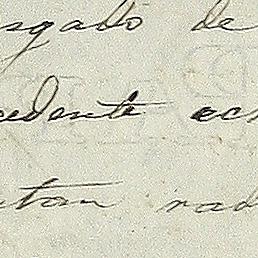 sgado de
cedente ec
tan rad